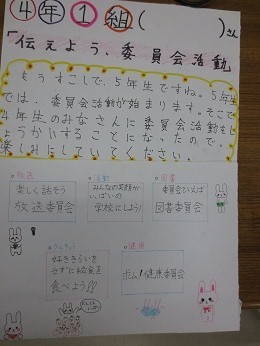 4年1組(　　　)さん
「伝えよう、委員会活動
もうすこしで、5年生ですね。5年生
では、委員会活動が始まります。そこで
4年生のみなさんに委員会活動をし
ょうかいすることになったので、
楽しみにしていてください。
放送
楽しく話そう
放送委員会
活動
みんなの笑顔が
いっぱいの
学校にしよう!
図書
委員会といえば
図書委員会
好ききらいを
せずに給食を
食べよう!!
健康
ポム!健康委員会